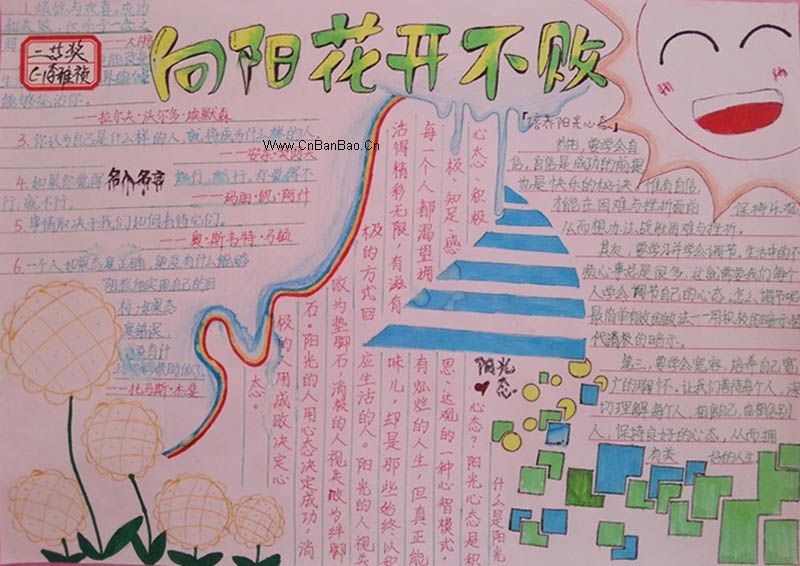 向阳花开不败
二等奖
www.CnBanBao.Cn
——拉尔夫·沃尔多·埃默森
3. 你认为自己是什么样的人，就将成为什么样的人。
名人名言
4. 如果你觉得
行，就不行。
5. 事情取决于我们如何看待它们。
——奥·斯韦特·马顿
6. 一个人如果态度正确，便没有什么能够
阻拦他实现自己的目
标，如果态
度错误，
——托马斯·杰斐
阳光
心态
什么是阳光
心态？阳光心态是积
极、知足、感
思、达观的一种心智模式，
每一个人都渴望拥
有灿烂的人生，但真正能
活得精彩无限，有滋有
味儿，却是那些始终以积
极的方式回
应生活的人。阳光的人视失
败为垫脚石，消极的人视失败为绊脚
石。阳光的人用心态决定成功，消
极的人用成败决定心
态。
「培养阳光心态」
首先，要学会自
信。自信是成功的前提
也是快乐的秘诀。惟有自信，
才能在困难与挫折面前
保持乐观
从而想办法战胜困难与挫折。
其次，要学习并学会调节。生活中的不
顺心事总是很多，这就需要我们每个
人学会调节自己的心态。怎么调节呢
最简单有效的做法——用积极的暗示替
代消极的暗示。
第三，要学会宽容，培养自己宽
广的胸怀。让我们善待每个人，深
切理解每个人，相信自己，也相信别
人，保持良好的心态，从而拥
有美
好的人生